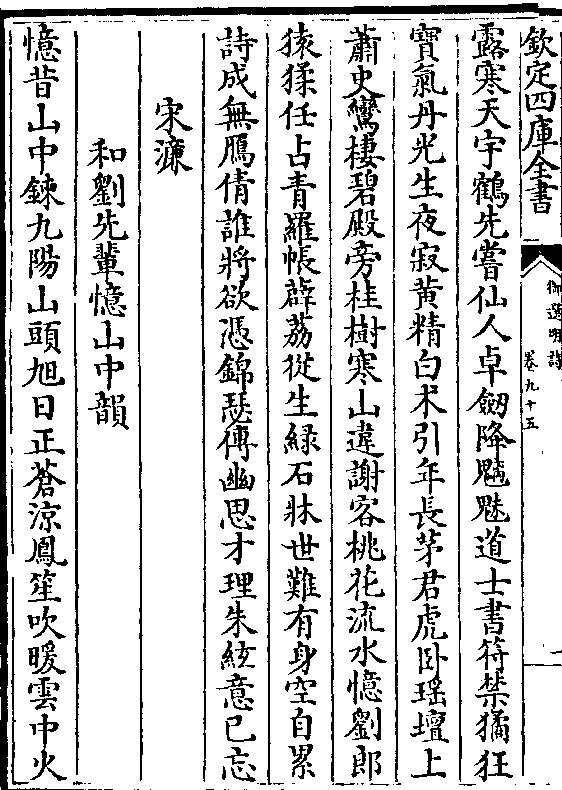 欽定四庫全書
御選明詩
卷九十五
露寒天宇鶴先嘗仙人卓劒降魑魅道士書符禁獝狂
寶氣丹光生夜寂黄精白术引年長茅君虎卧瑶壇上
蕭史鸞棲碧殿旁桂樹寒山違謝客桃花流水憶劉郎
猿猱任占青羅帳薜荔從生緑石牀世難有身空自累
詩成無鴈倩誰將欲憑錦瑟傳幽思才理朱絃意已忘
宋濂
和劉先輩憶山中韻
憶昔山中鍊九陽山頭旭日正蒼涼鳳笙吹暖雲中火